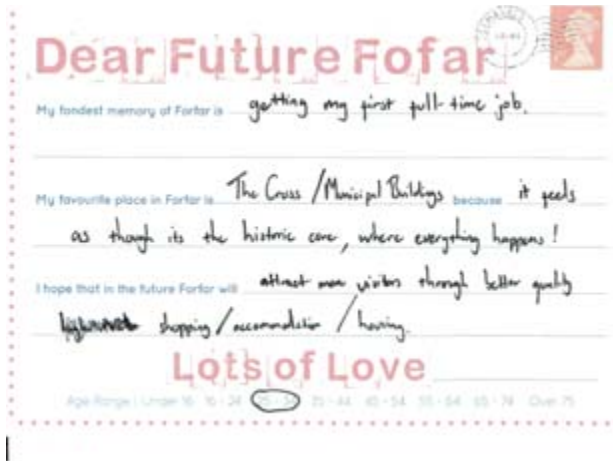 Dear Future Fofar
My fondest memory of Forfar is getting my first full-time job.
My favourite place in Forfar is The Cross / Municipal Buildings because it feels
as though its the historic core, where everything happens!
I hope that in the future Forfar will attract more visitors through better quality
shopping / accommodation / housing.
Lots of Love
Age Range | Under 16 16 - 24 25 - 34 35 - 44 45 - 54 55 - 64 65 - 74 Over 75